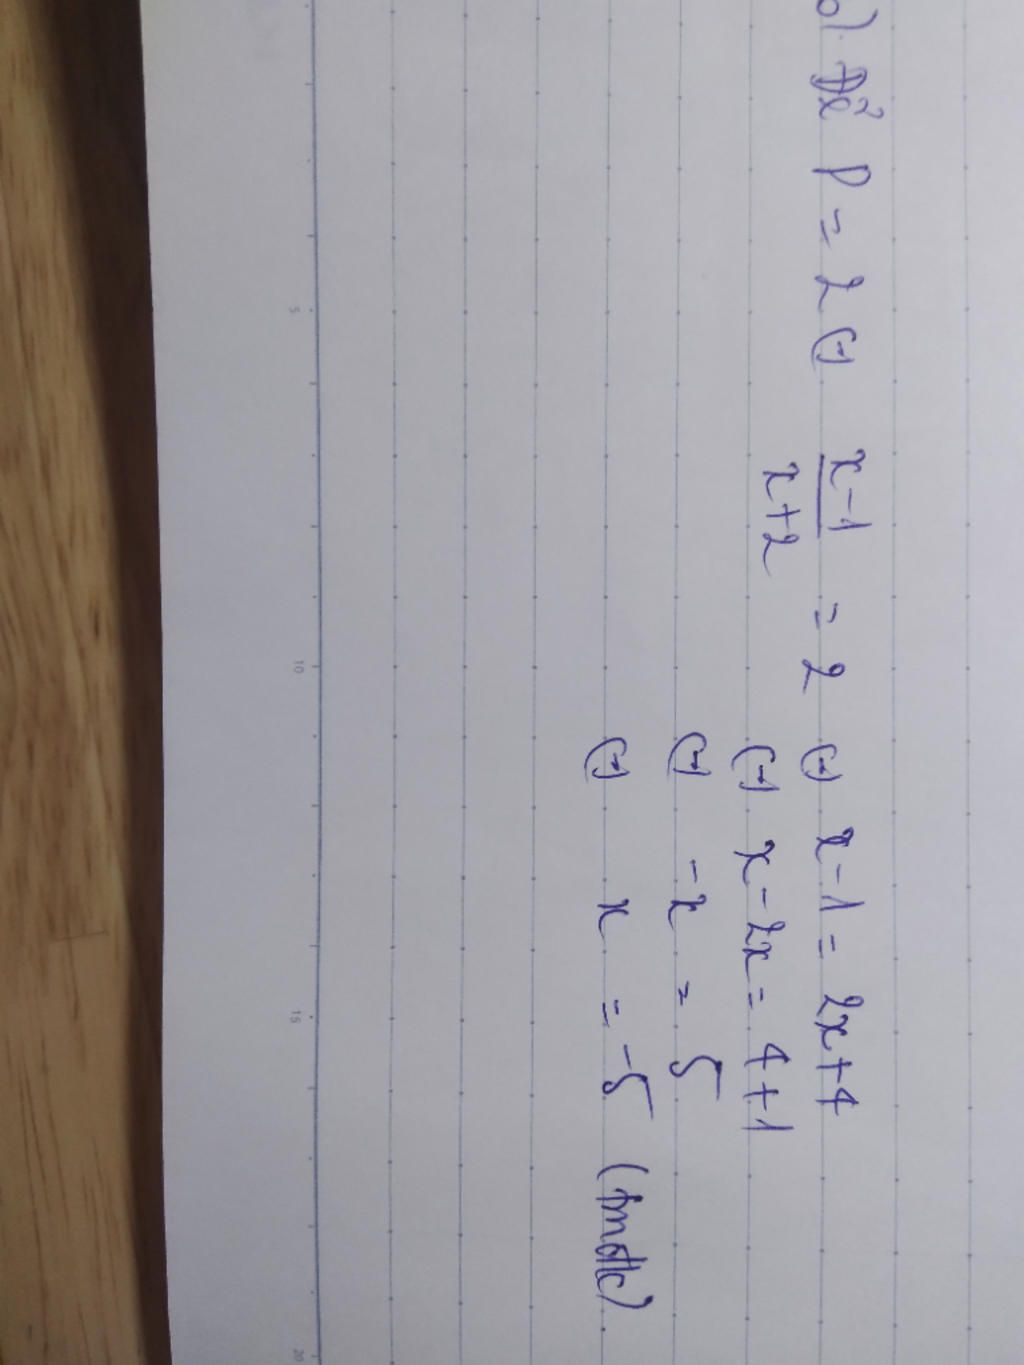 b). Để P = 2 (=) x-1/x+2 = 2 (=) x-1 = 2x+4
(=) x-2x = 4+1
(=) -x = 5
(=) x = -5 (tmđk)
5 10 15 20